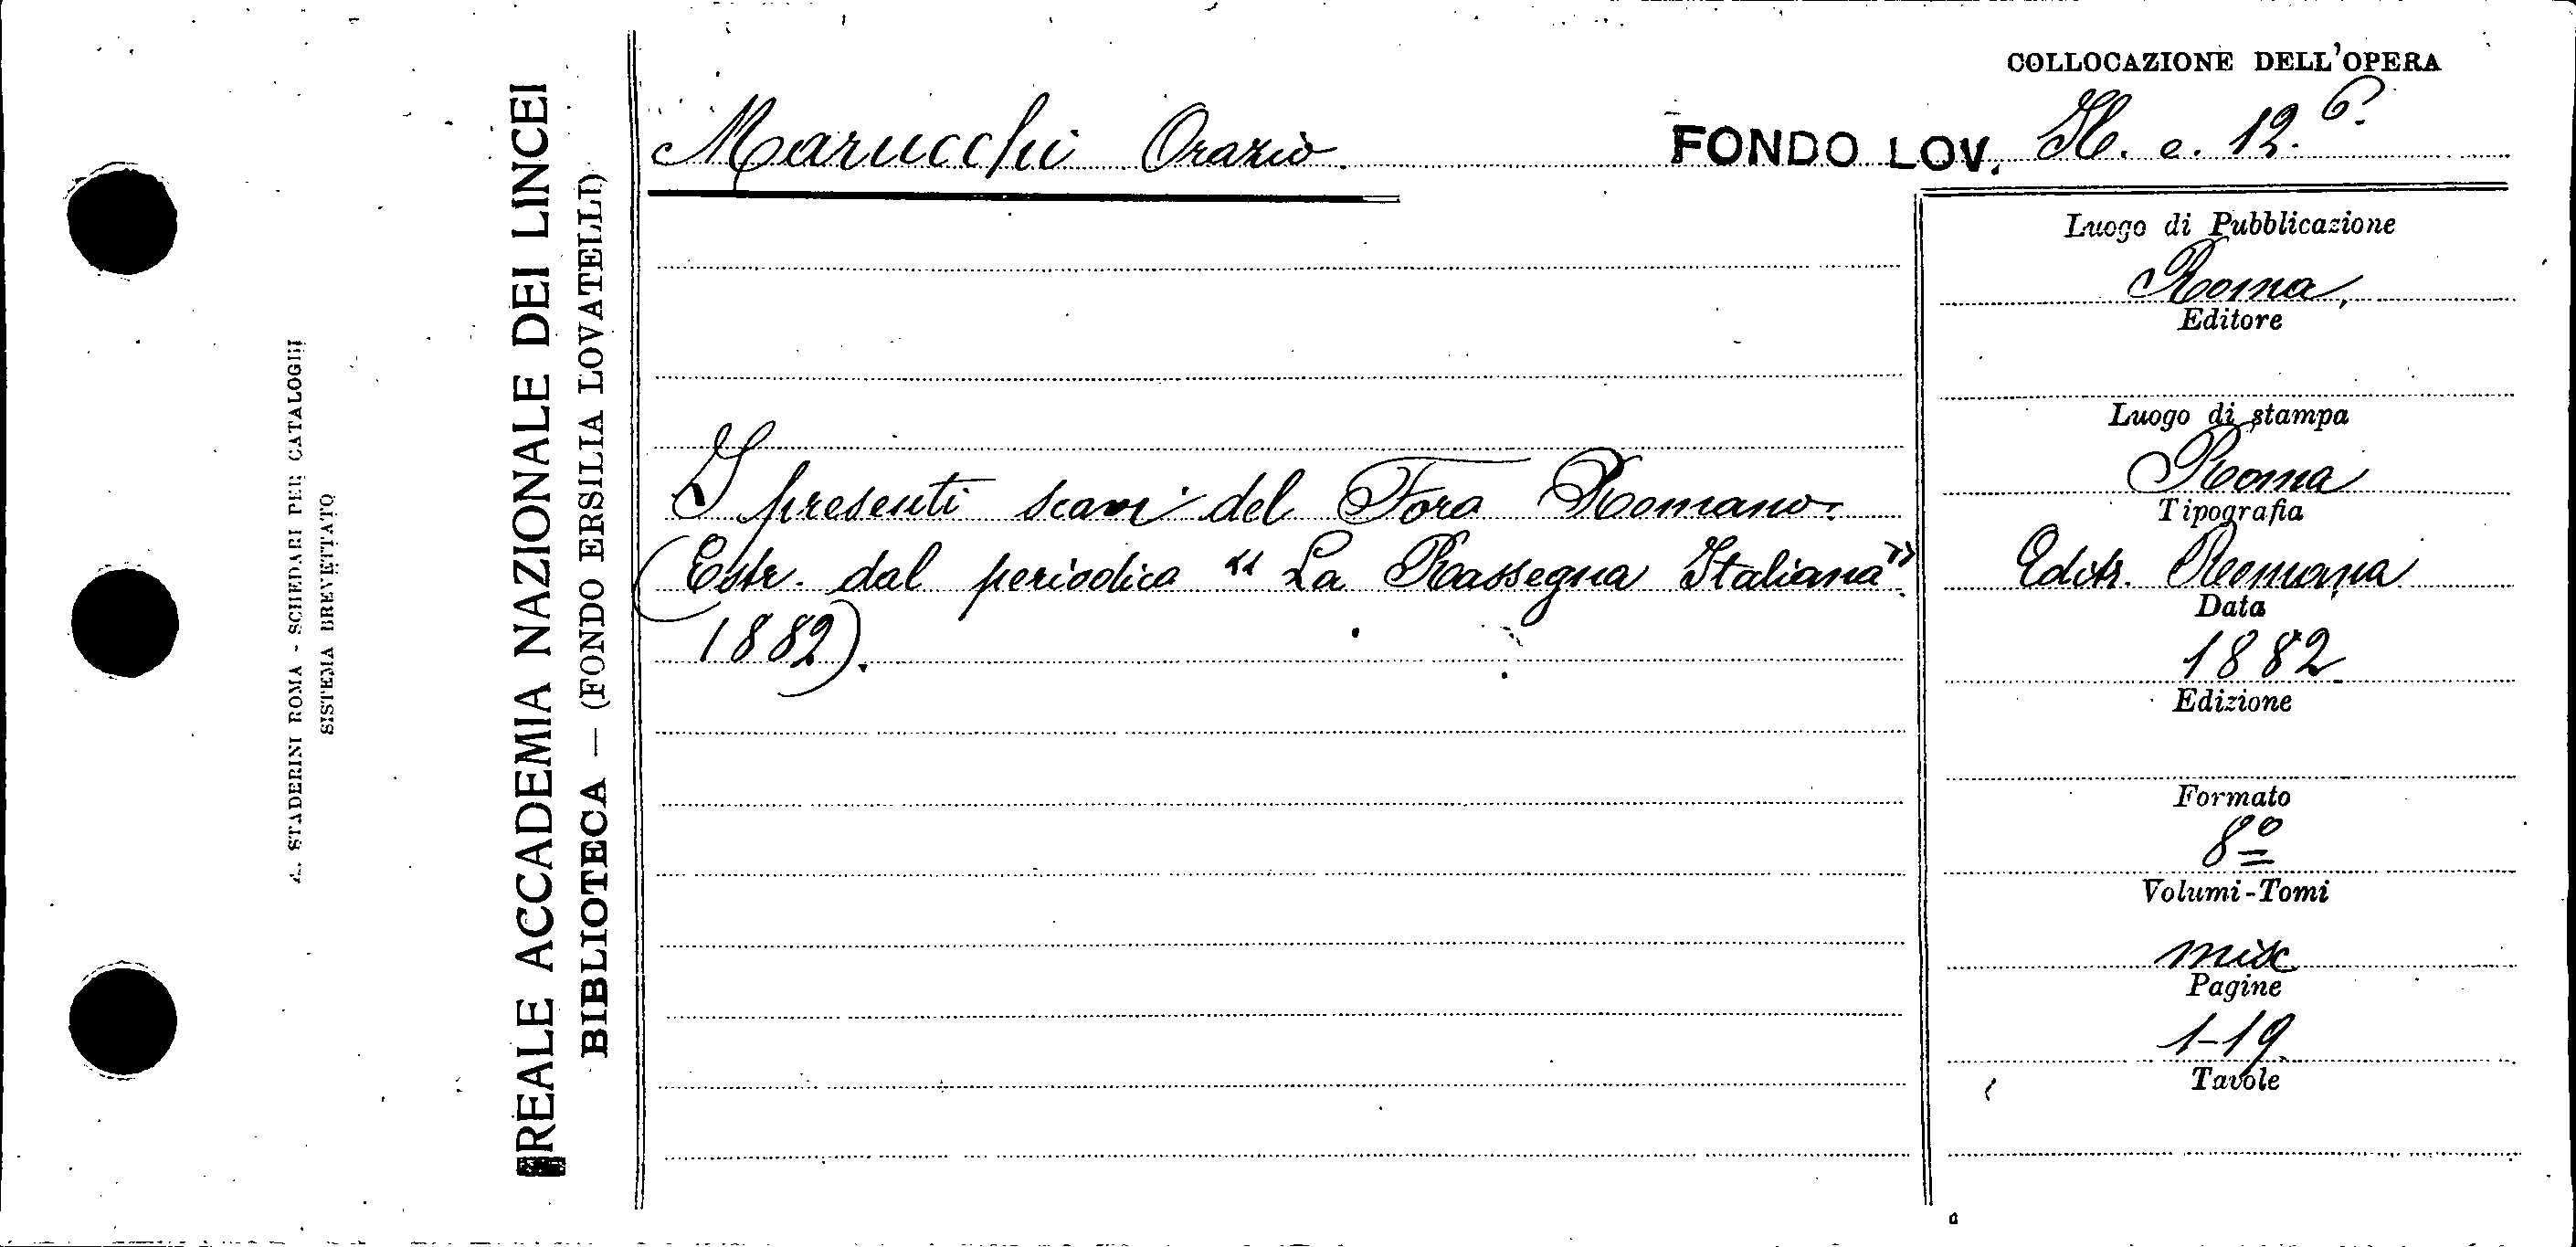 COLLOCAZIONE DELL'OPERA
Marucchi Orazio.
FONDO LOV. 12.6.
I presenti scavi del Foro Romano.
(Estr. dal periodico "La Rassegna Italiana"
1882).
Luogo di Pubblicazione
Roma,
Editore
Luogo di stampa
Roma
Tipografia
Editr. Romana,
Data
1882.
Edizione
Formato
8º
Volumi-Tomi
misc
Pagine
1-19.
Tavole
REALE ACCADEMIA NAZIONALE DEI LINCEI
BIBLIOTECA — (FONDO ERSILIA LOVATELLI)
A. STADERINI ROMA - SCHEDARI PER CATALOGHI
SISTEMA BREVETTATO